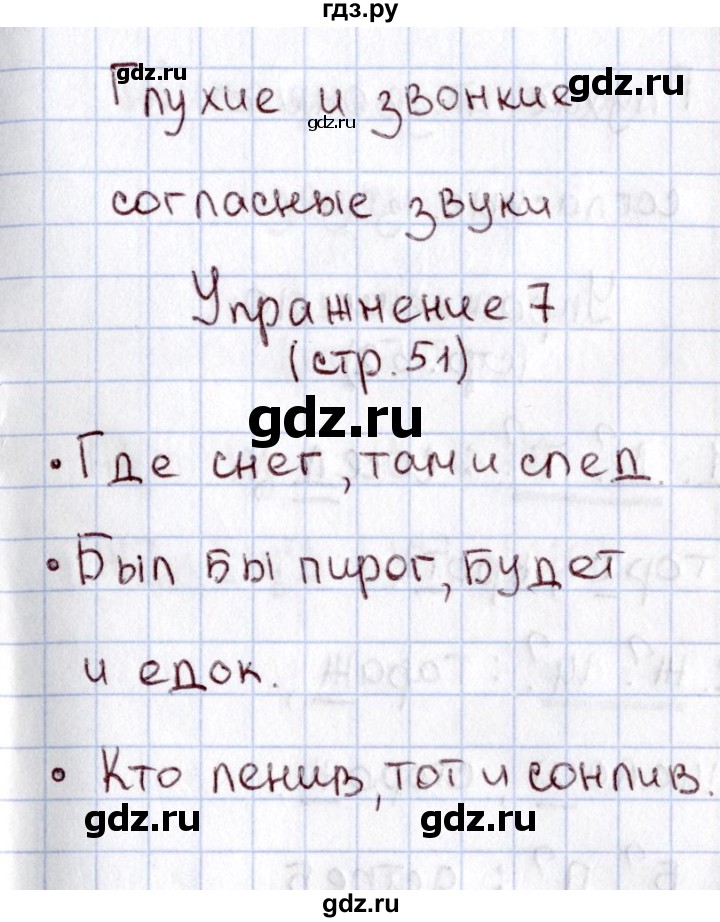 гдз.ру
gdz.ru
gdz.ru
Глухие и звонкие
gdz.ru
согласные звуки
Упражнение 7
(стр. 51)
gdz.ru
• Где снег, там и след.
• Был бы пирог, будет
и едок.
• Кто ленив, тот и сонлив.
gdz.ru
gdz.ru
gdz.ru